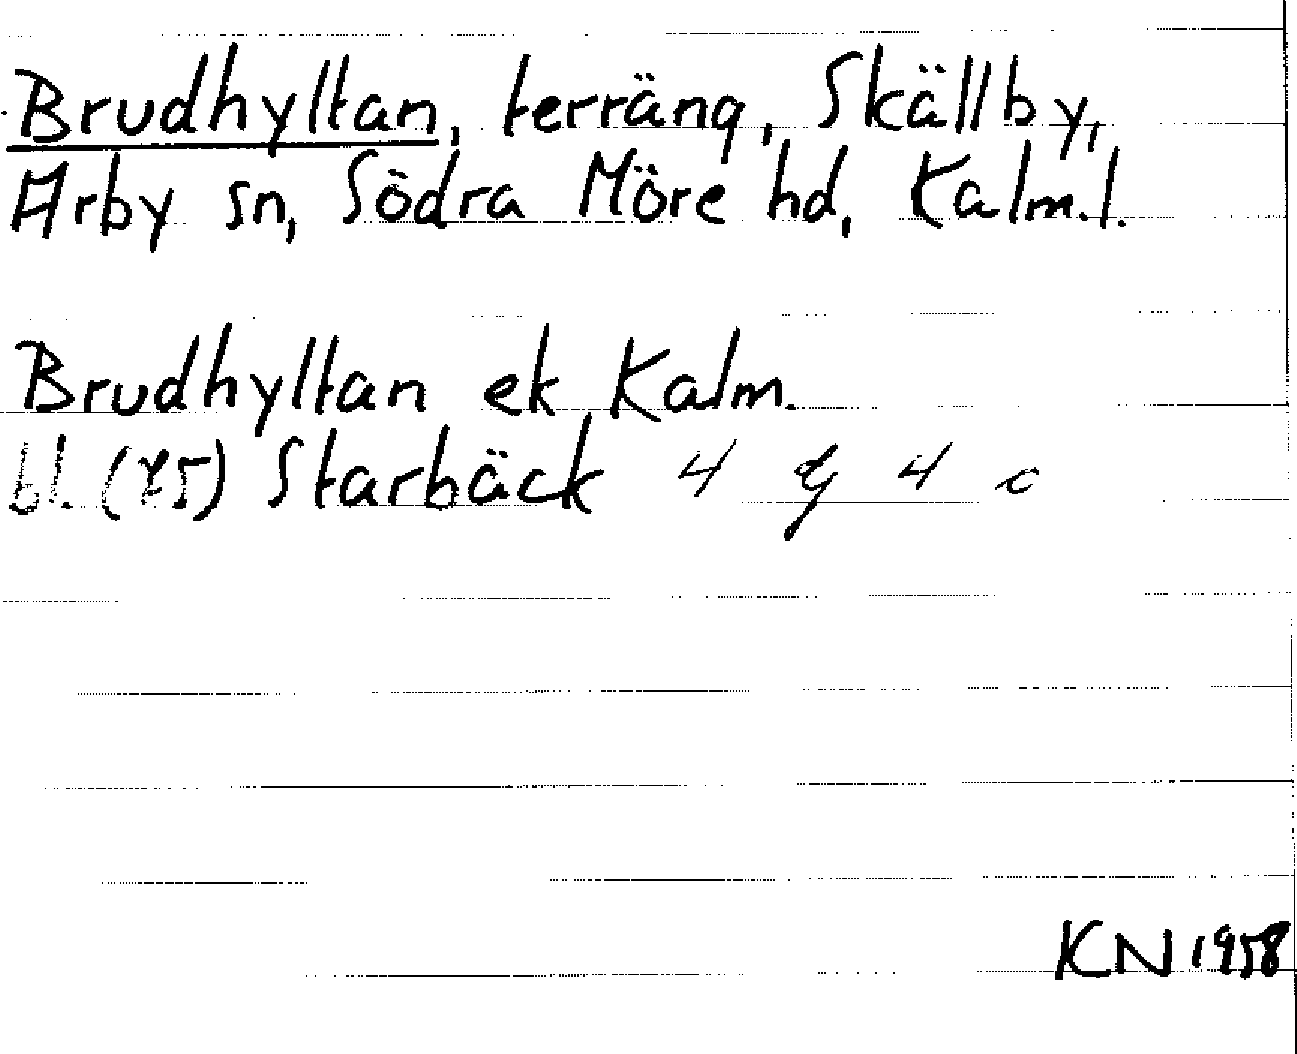 Brudhyltan, terräng, Skällby,
Arby sn, Södra Möre hd, Kalm.l.
Brudhyltan ek Kalm.
bl. (75) Starbäck 4 g 4 c
KN 1958